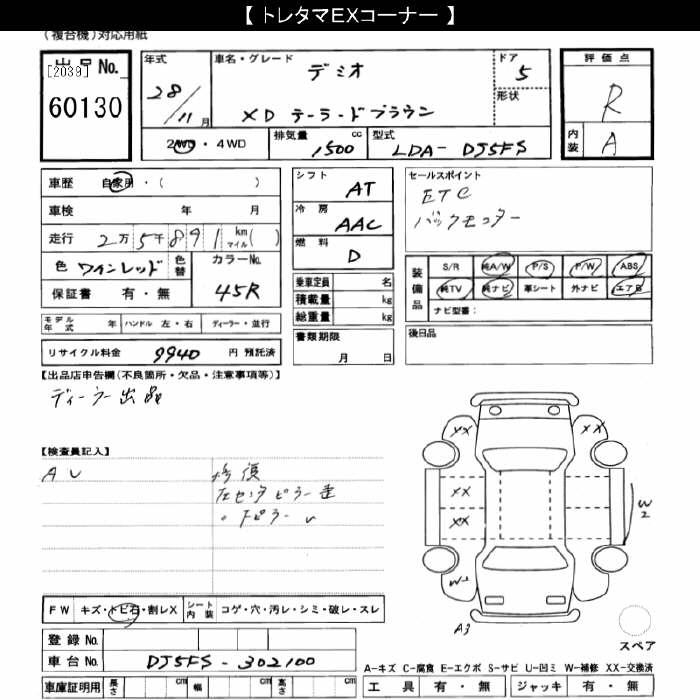 【 トレタマEXコーナー 】
(複合機)対応用紙
出品No.
[2039]
60130
年式
28/11月
車名・グレード
デミオ
XD テーラードブラウン
ドア
5
形状
評価点
R
内装
A
2WD・4WD
排気量
1500 cc
型式
LDA- DJ5FS
車歴 自家用・( )
車検 年 月
走行 2万5千891 km マイル( )
色 ワインレッド 色替
カラーNo.
45R
保証書 有・無
シフト
AT
冷房
AAC
燃料
D
乗車定員 名
積載量 kg
総重量 kg
セールスポイント
ETC
バックモニター
装備品
S/R 純A/W P/S P/W ABS
純TV 純ナビ 革シート 外ナビ エアB
ナビ型番:
モデル年式 年 ハンドル 左・右 ディーラー・並行
リサイクル料金 9940 円 預託済
書類期限
月 日
後日品
【出品店申告欄(不良箇所・欠品・注意事項等)】
ディーラー出品
【検査員記入】
AU
修復
左センタピラー
FW キズ・トビ石・割レX シート内装 コゲ・穴・汚レ・シミ・破レ・スレ
登録No.
車台No. DJ5FS-302100
車庫証明用 長さ cm 幅 cm 高さ cm
XX
XX
XX
XX
W2
W2
A3
スペア
A-キズ C-腐食 E-エクボ S-サビ U-凹ミ W-補修 XX-交換済
工具 有・無 ジャッキ 有・無